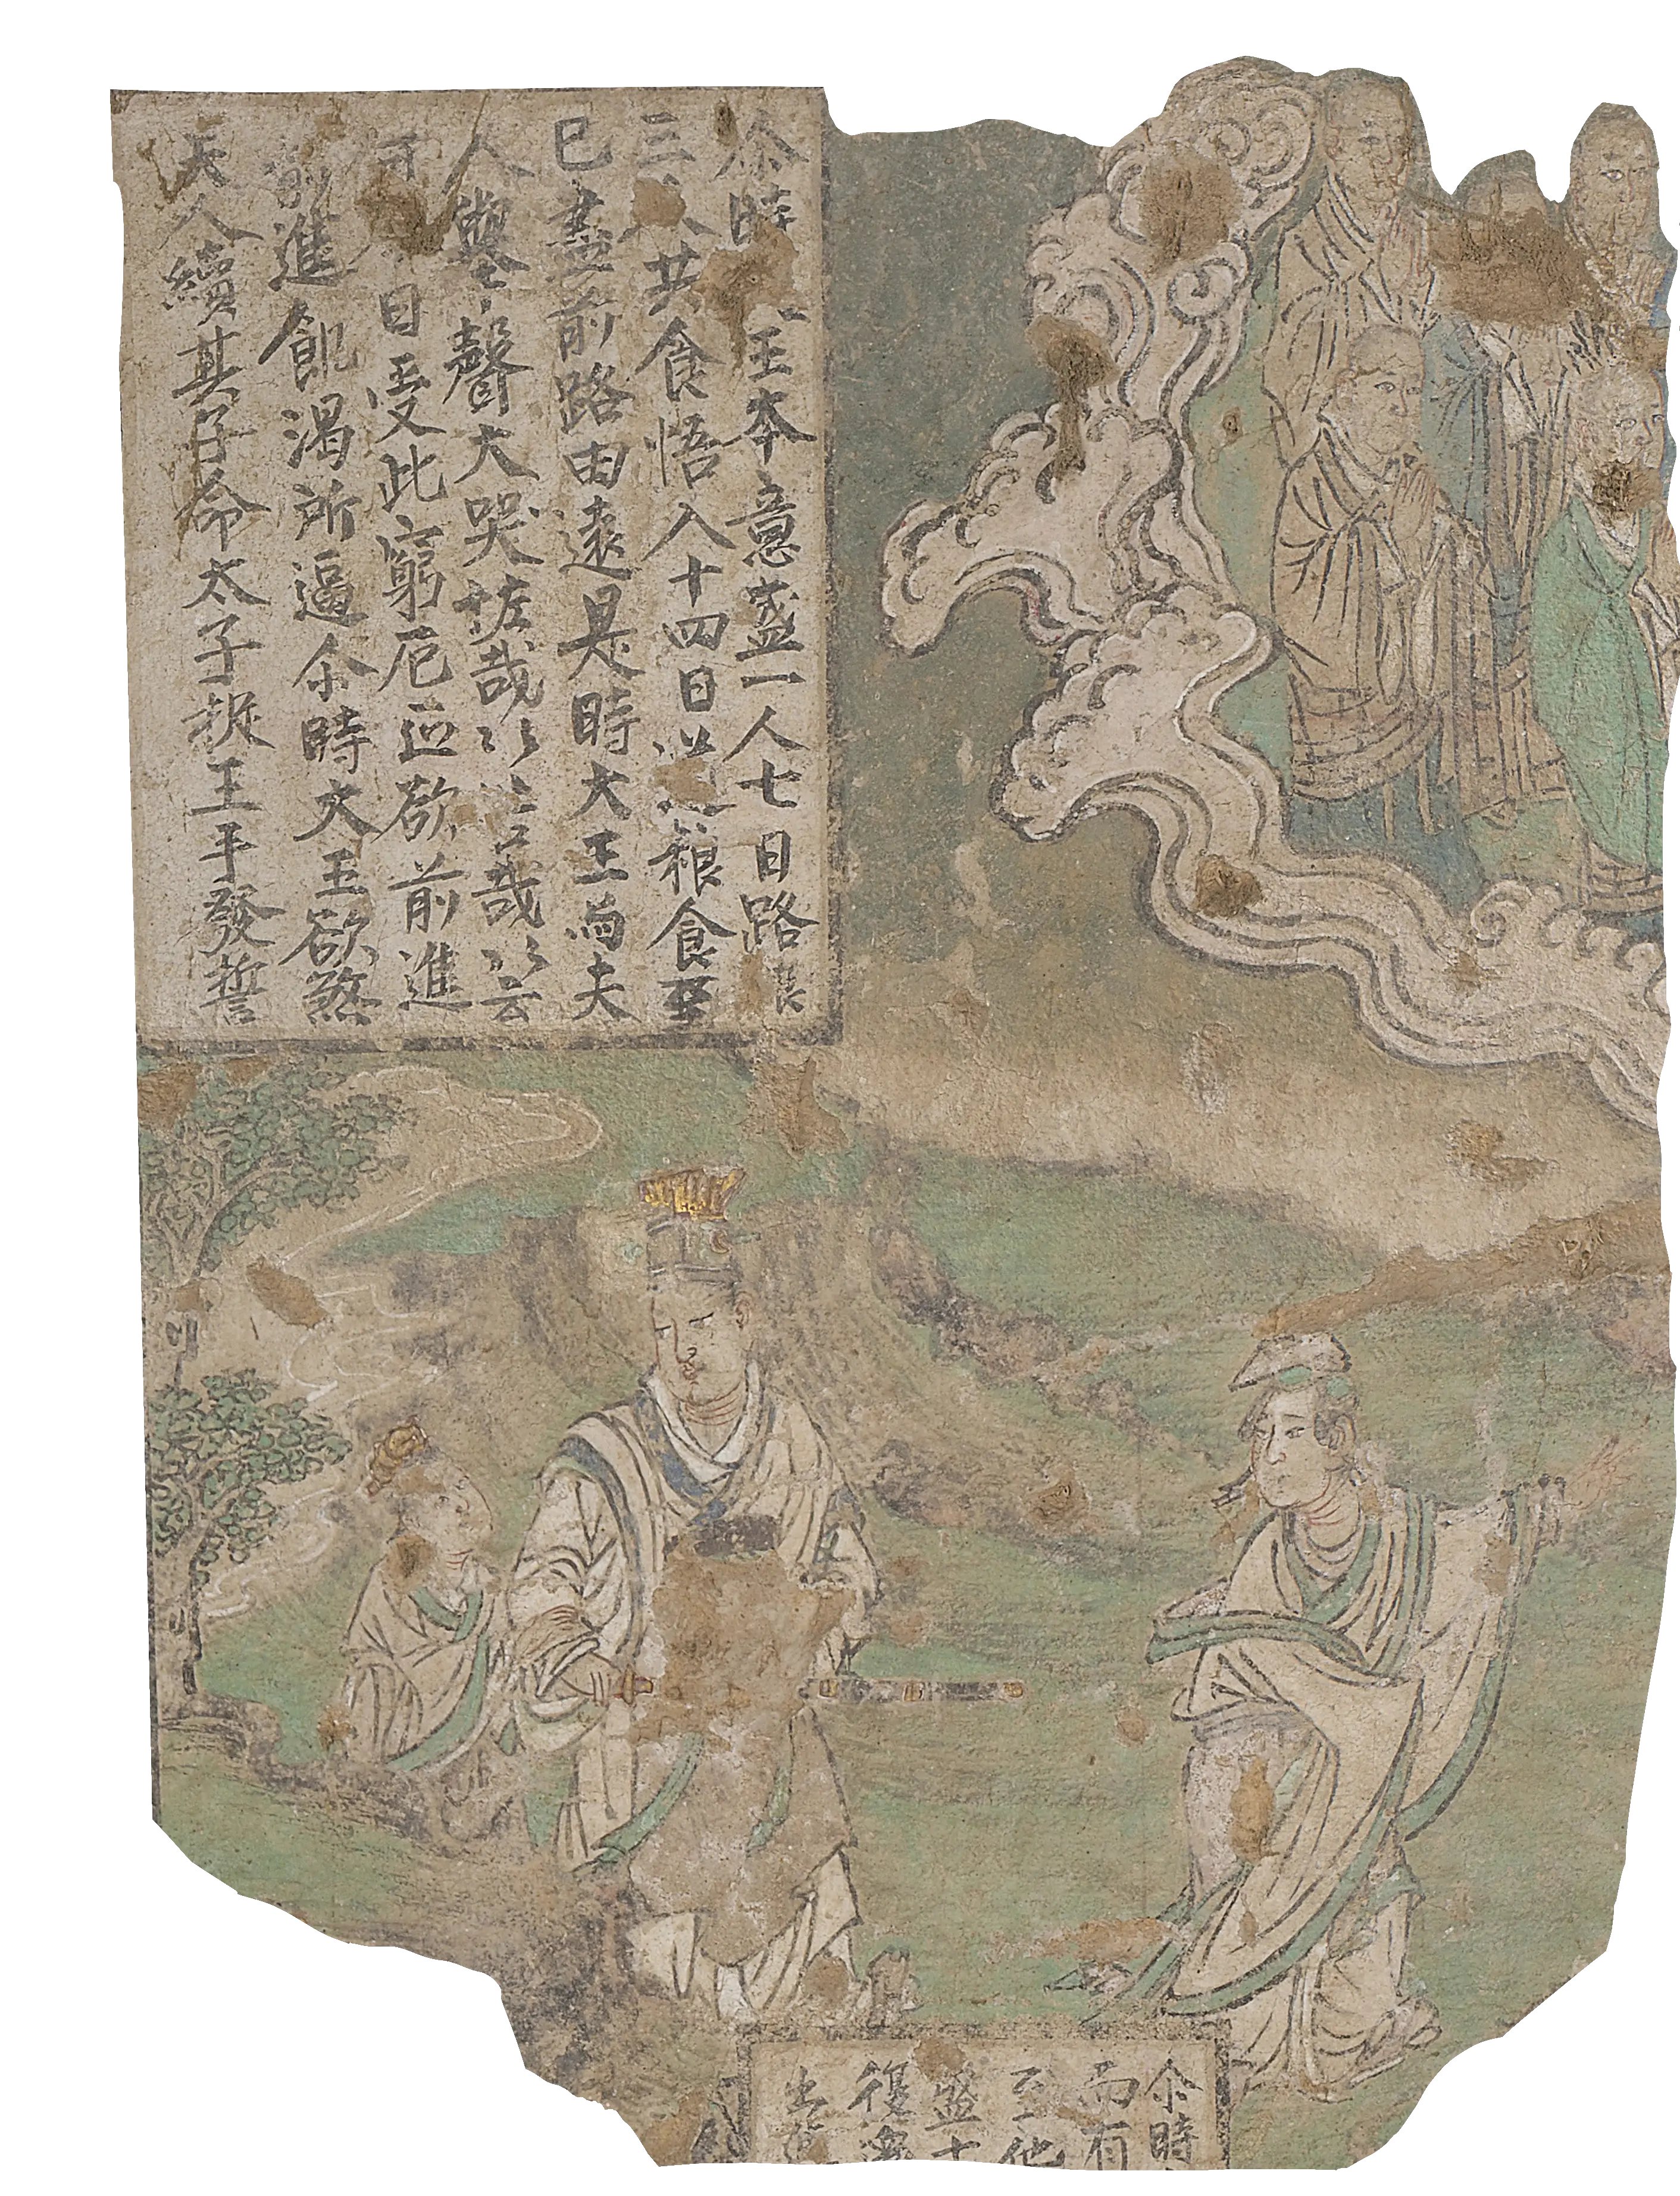 尒時王本意盛一人七日路
三人共食悟入十四日粮食
已盡前路由遠是時大王為夫
人舉聲大哭恠哉〻苦哉〻云
日受此窮厄正欲前進
前進飢渴所逼尒時大王欲煞
夫人續其子命太子捉王手發誓
尒時
而有
至他
盛七
復
出